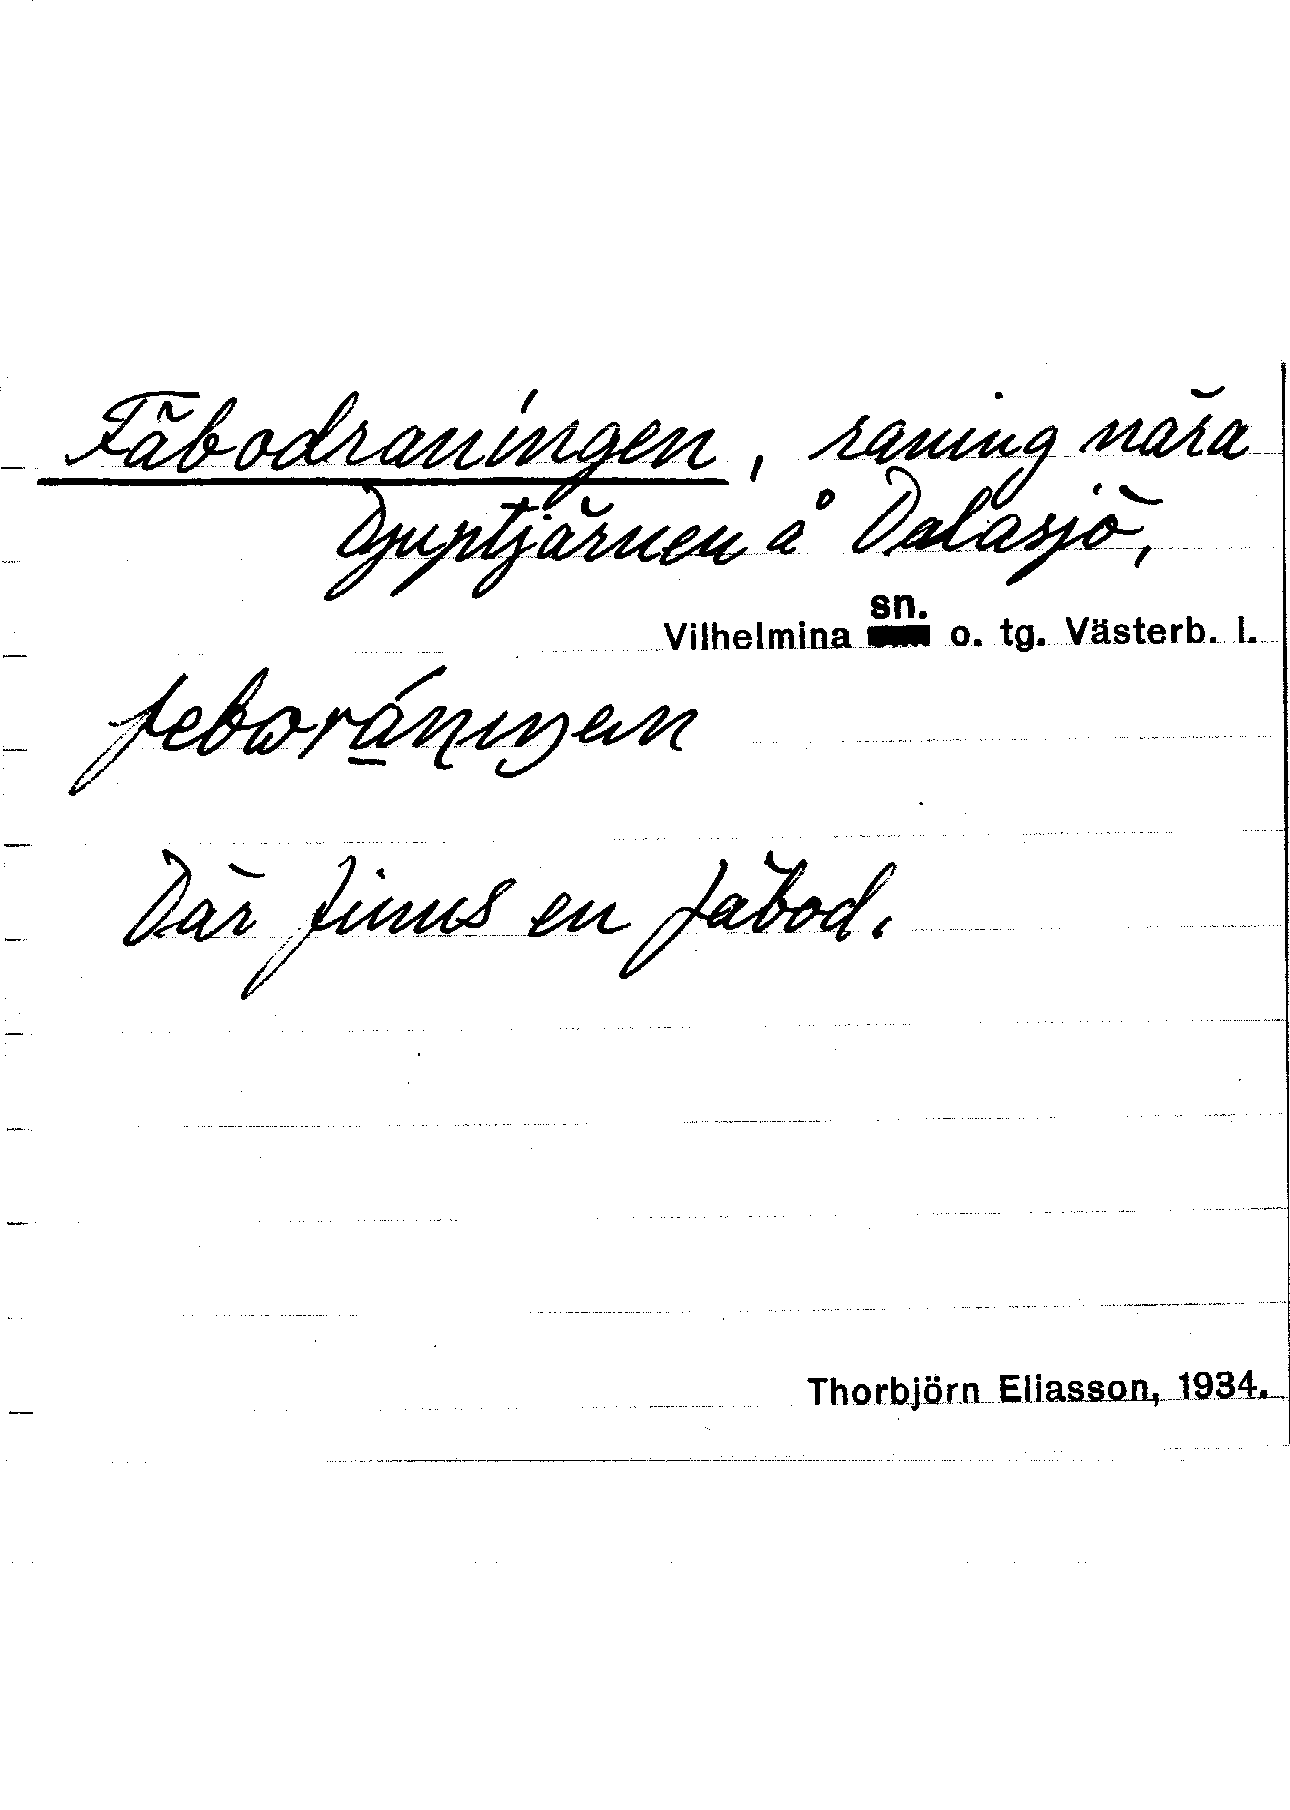 Fäbodraningen, raning nära
Djuptjärnen å Dalasjö,
sn.
Vilhelmina o. tg. Västerb. l.
Där finns en fäbod.
Thorbjörn Eliasson, 1934.